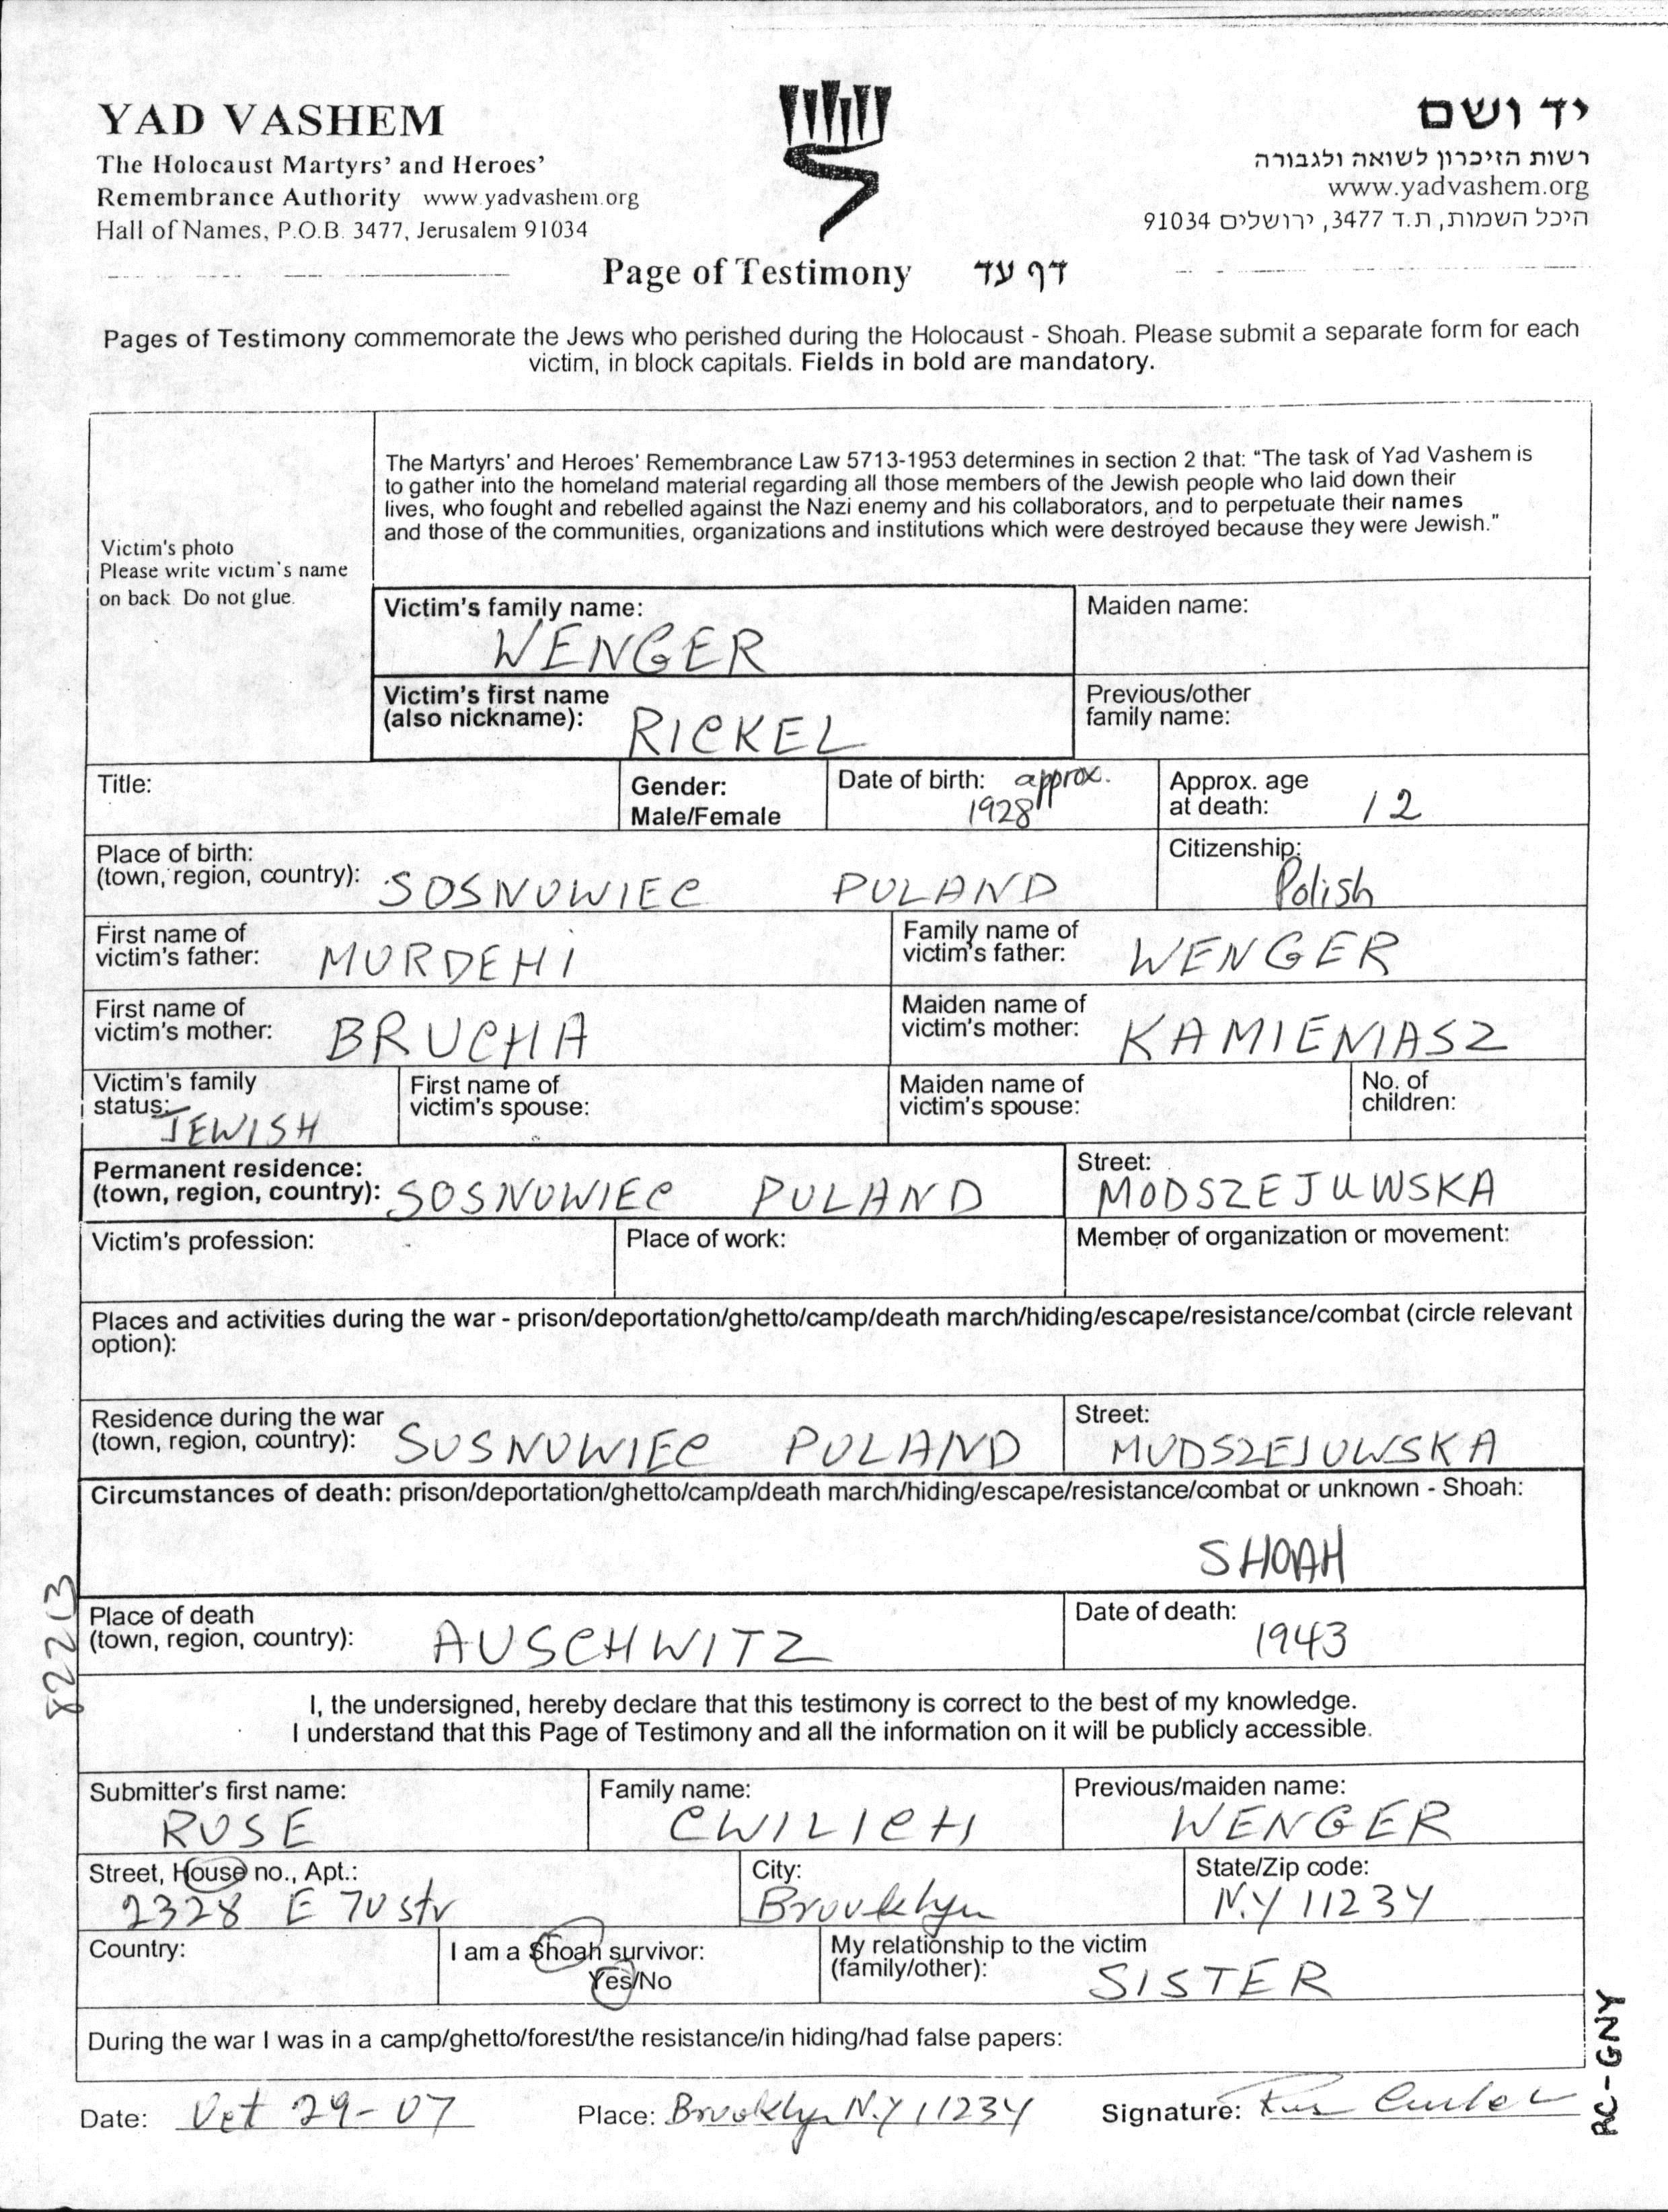 YAD VASHEM
The Holocaust Martyrs' and Heroes'
Remembrance Authority www.yadvashem.org
Hall of Names, P.O.B. 3477, Jerusalem 91034
יד ושם
רשות הזיכרון לשואה ולגבורה
www.yadvashem.org
היכל השמות, ת.ד 3477, ירושלים 91034
Page of Testimony דף עד
Pages of Testimony commemorate the Jews who perished during the Holocaust - Shoah. Please submit a separate form for each
victim, in block capitals. Fields in bold are mandatory.
Victim's photo
Please write victim's name
on back. Do not glue.
The Martyrs' and Heroes' Remembrance Law 5713-1953 determines in section 2 that: "The task of Yad Vashem is
to gather into the homeland material regarding all those members of the Jewish people who laid down their
lives, who fought and rebelled against the Nazi enemy and his collaborators, and to perpetuate their names
and those of the communities, organizations and institutions which were destroyed because they were Jewish."
Victim's family name: WENGER
Maiden name:
Victim's first name
(also nickname): RICKEL
Previous/other
family name:
Title:
Gender:
Male/Female
Date of birth: approx.
1928
Approx. age
at death: 12
Place of birth:
(town, region, country): SOSNOWIEC POLAND
Citizenship:
Polish
First name of
victim's father: MORDEHI
Family name of
victim's father: WENGER
First name of
victim's mother: BRUCHA
Maiden name of
victim's mother: KAMIENIASZ
Victim's family
status: JEWISH
First name of
victim's spouse:
Maiden name of
victim's spouse:
No. of
children:
Permanent residence:
(town, region, country): SOSNOWIEC POLAND
Street:
MODSZEJUWSKA
Victim's profession:
Place of work:
Member of organization or movement:
Places and activities during the war - prison/deportation/ghetto/camp/death march/hiding/escape/resistance/combat (circle relevant
option):
Residence during the war
(town, region, country): SOSNOWIEC POLAND
Street:
MODSZEJOWSKA
Circumstances of death: prison/deportation/ghetto/camp/death march/hiding/escape/resistance/combat or unknown - Shoah:
SHOAH
Place of death
(town, region, country): AUSCHWITZ
Date of death:
1943
I, the undersigned, hereby declare that this testimony is correct to the best of my knowledge.
I understand that this Page of Testimony and all the information on it will be publicly accessible.
Submitter's first name:
ROSE
Family name:
CWILICH
Previous/maiden name:
WENGER
Street, House no., Apt.:
2328 E 70 str
City:
Brooklyn
State/Zip code:
N.Y 11234
Country:
I am a Shoah survivor:
Yes/No
My relationship to the victim
(family/other): SISTER
During the war I was in a camp/ghetto/forest/the resistance/in hiding/had false papers:
Date: Oct 29-07
Place: Brooklyn N.Y 11234
Signature:
82213
RC-GNY